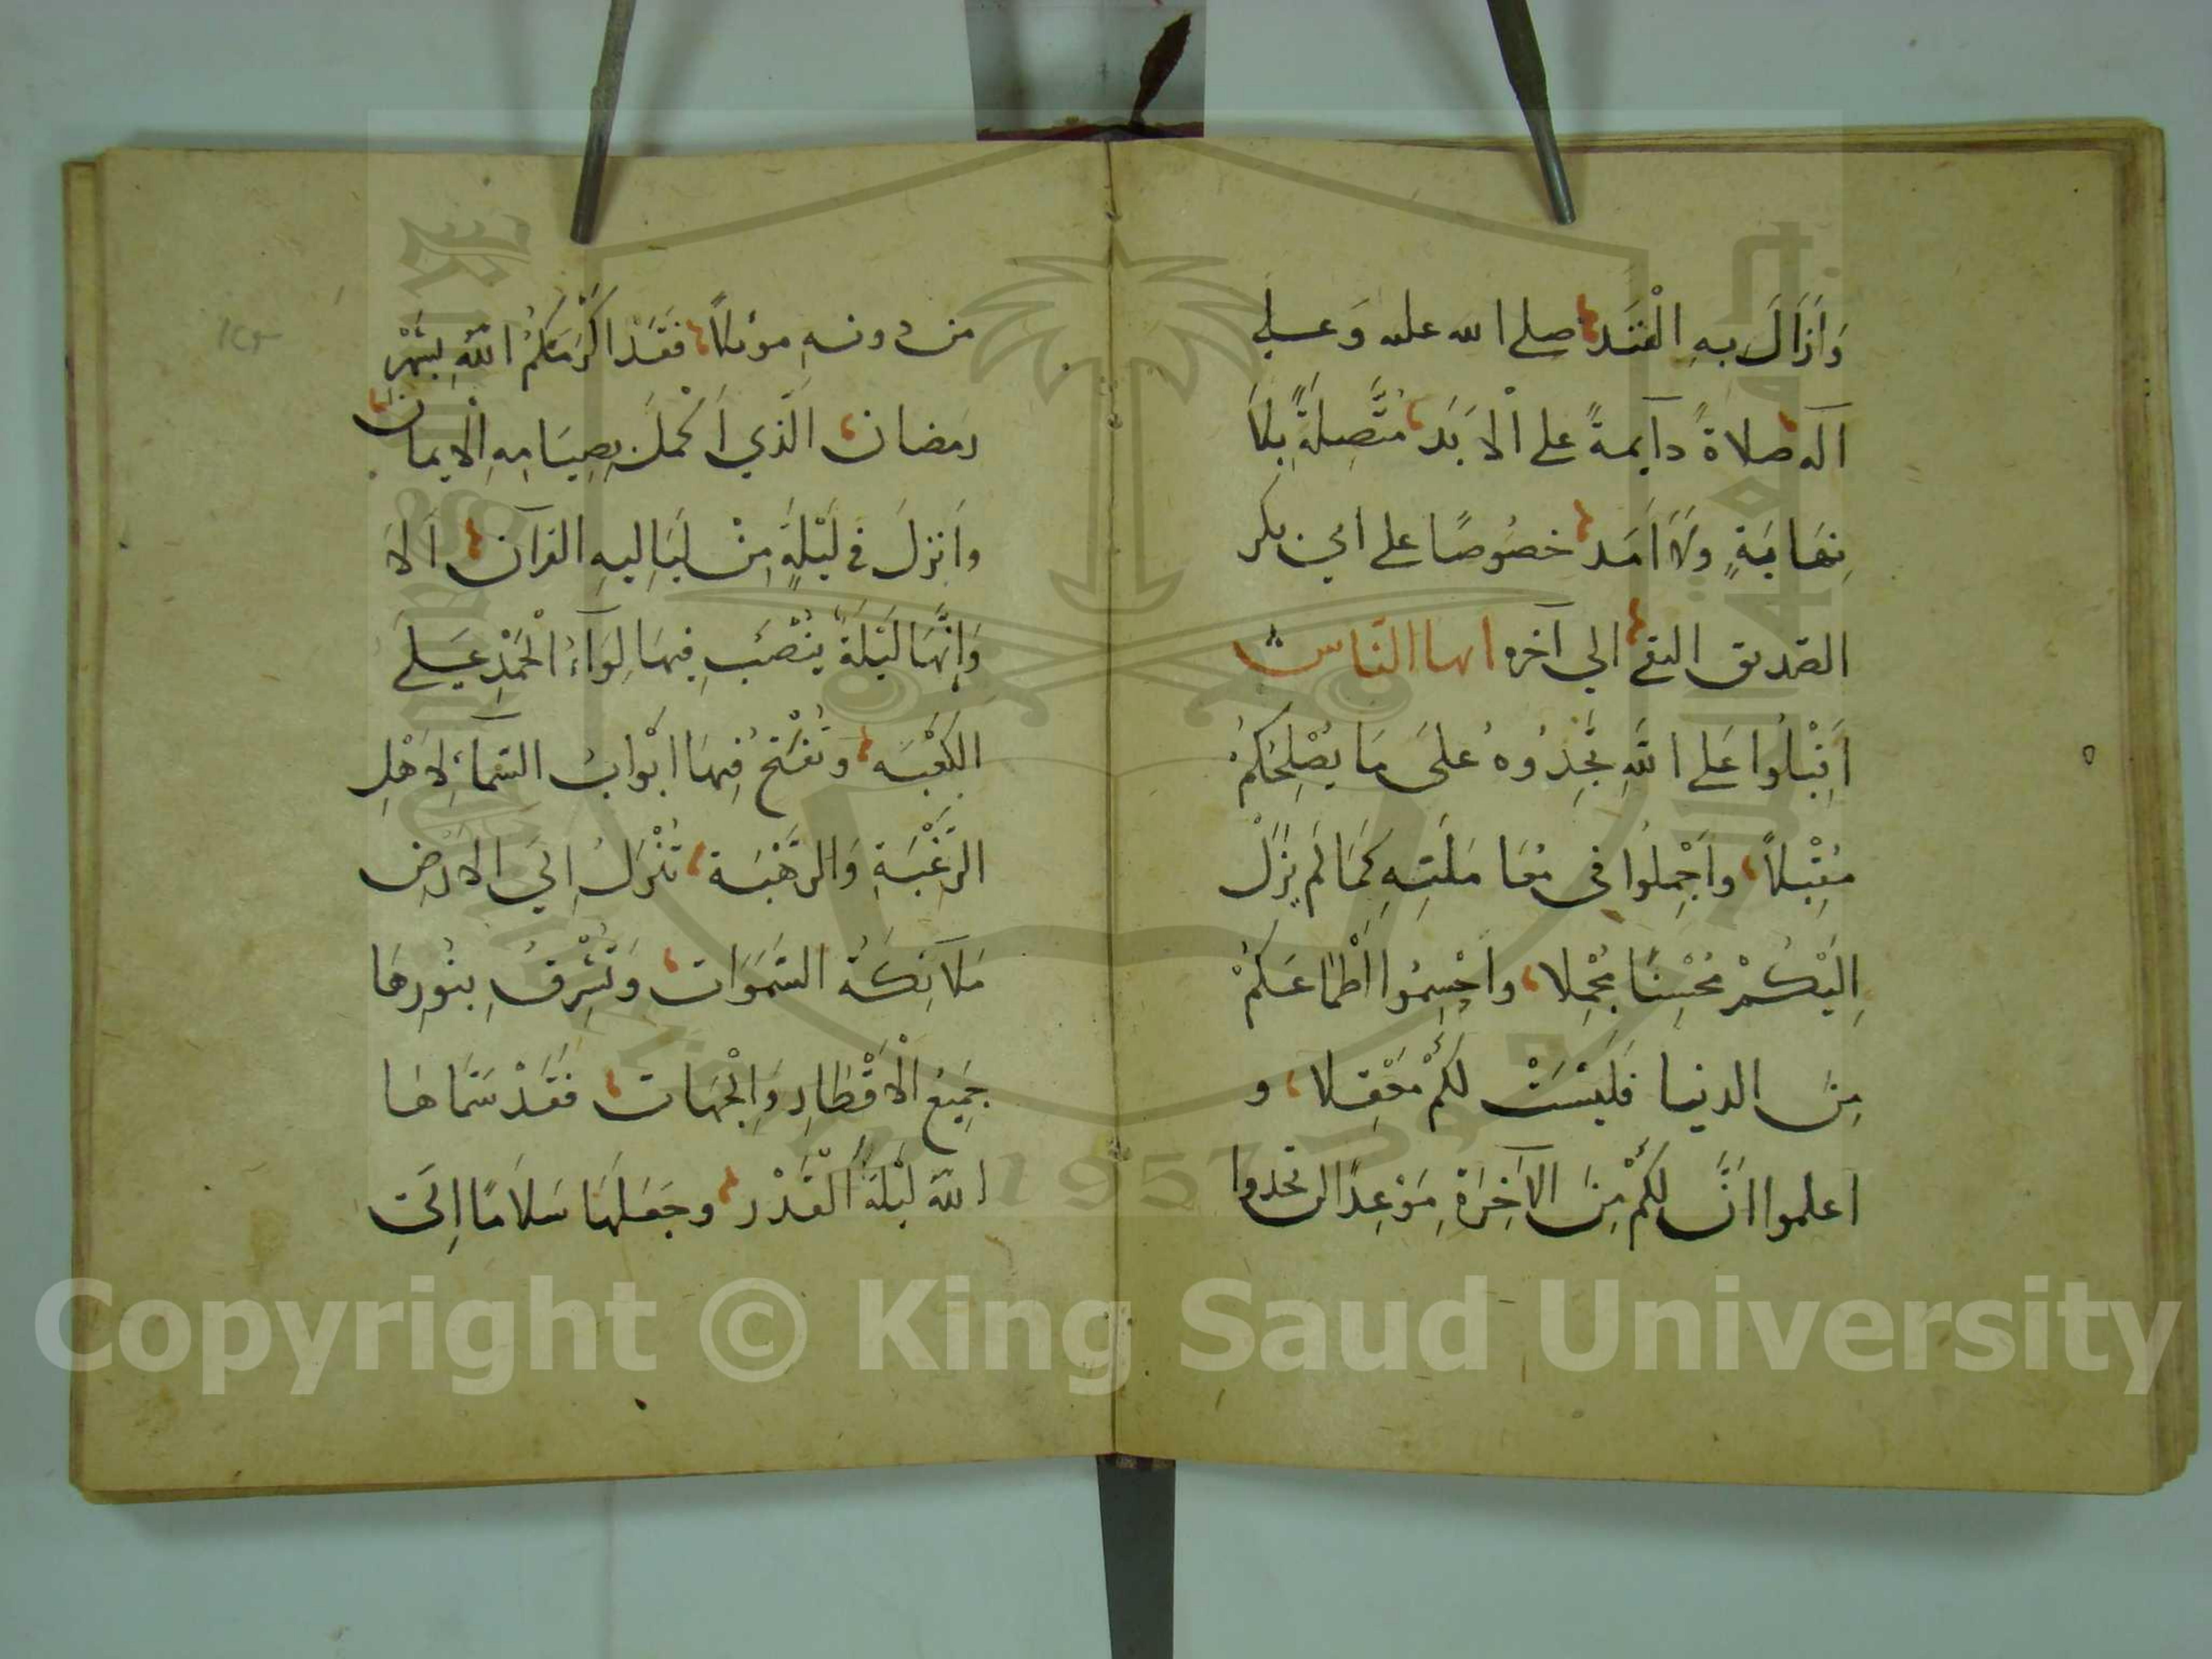 وَأَزَالَ بِهِ الْفَنَد صلى الله عليه وَعلى
آله صلاةً دآيمةً على الْأَبَد مُتَّصِلَةً بِلَا
نِهَايَةٍ وَلَا أَمَد خصُوصًا على ابي بكر
الصديق التقي الي آخره ايها النَّاس
أَقْبِلُوا عَلى اللَّهِ تَجِدُوهُ عَلَى مَا يُصْلِحُكُمْ
مُقْبِلًا واَجْمِلُوا في مُعَامَلَتِهِ كَمَا لَمْ يَزَلْ
اِلَيْكُمْ مُحْسِنًا مُجْمِلا واحْسِمُوا أَطْمَاعَكُمْ
مِنَ الدنيا فَلَيْسَتْ لَكُمْ مَعْقِلا و
اعلموا انَّ لَكُمْ مِنَ الآخِرَةِ مَوْعِدًا لن تجدوا
من دونهِ موئلًا فَقَدْ اكْرَمَكُمُ اللَّهُ بِشَهْرِ
رمضان الَّذي أَكْمَلَ بِصِيَامِهِ الْإيمان
واَنزلَ في لَيْلَةٍ مِنْ لَيَالِيهِ القرآن اَلَا
وَإِنَّهَا لَيْلَةٌ يُنْصَبُ فِيهَا لِوَآءُ الْحَمْدِ عَلى
الكَعْبَه وَتُفْتَحُ فِيهَا ابْوابُ السَّمَآءِ لِأَهْلِ
الرَّغْبَةِ وَالرَّهْبَة تَنْزِلُ اِلَى الارْضِ
مَلَائِكَةُ السَّمَوَات وَتُشْرِقُ بِنُورِهَا
جَمِيعُ الْأَقْطَارِ وَالْجِهَات فَقَدْ سَمَّاهَا
اللهُ لَيْلَةَ الْقَدْر وجَعَلَهَا سَلَامًا اِلَى
Copyright © King Saud University
1957